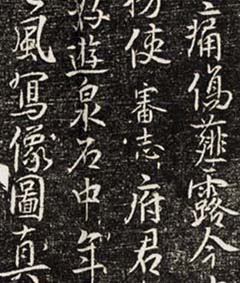 痛傷薤露今
使審志府君
好遊泉石中年
風寫像圖真